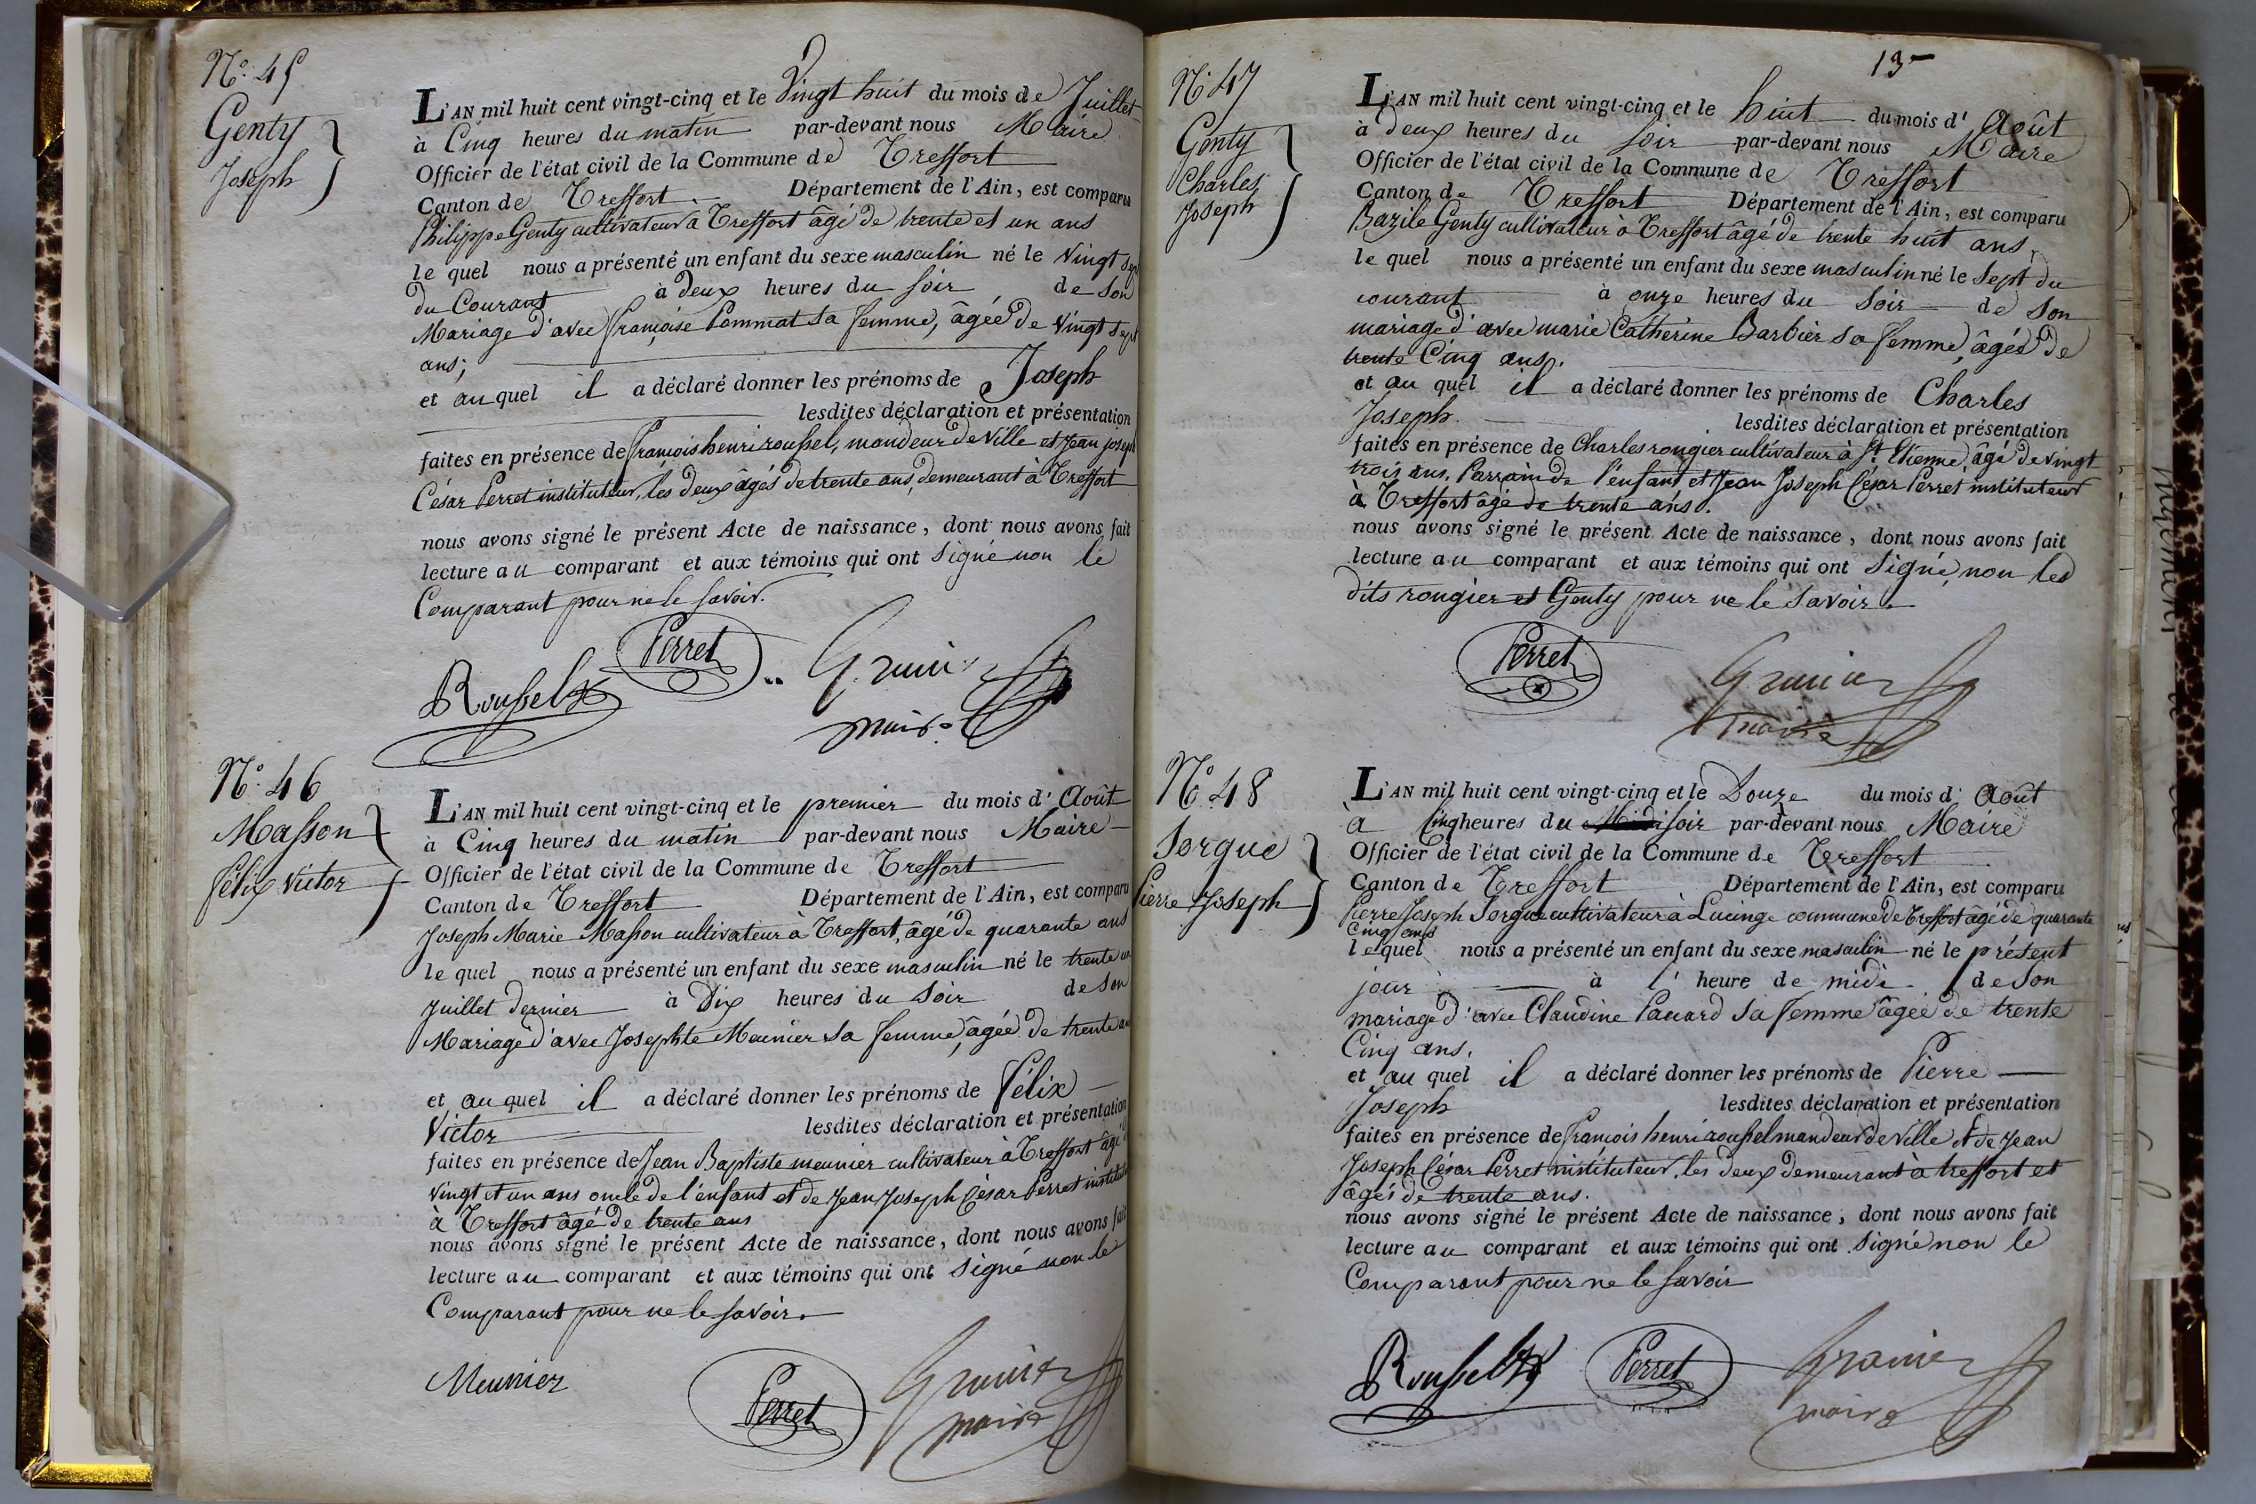 N.° 45
Genty
Joseph
L'AN mil huit cent vingt-cinq et le Vingt huit du mois de Juillet
à Cinq heures du matin par-devant nous Maire
Officier de l'état civil de la Commune de Treffort
Canton de Treffort Département de l'Ain, est comparu
Philippe Genty cultivateur à Treffort âgé de trente et un ans
le quel nous a présenté un enfant du sexe masculin né le vingt sept
du Courant à deux heures du soir de son
Mariage d'avec françoise Pommat sa femme, âgée de vingt sept
ans;
et au quel il a déclaré donner les prénoms de Joseph
lesdites déclaration et présentation
faites en présence de françois henri roussel, mandeur de ville et Jean joseph
César Perret instituteur, les deux âgés de trente ans, demeurant à Treffort
nous avons signé le présent Acte de naissance, dont nous avons fait
lecture au comparant et aux témoins qui ont signé non le
Comparant pour ne le savoir.
Perret
Roussel
Granier
maire
N.° 46
Masson
félix victor
L'AN mil huit cent vingt-cinq et le premier du mois d'Août
à Cinq heures du matin par-devant nous Maire
Officier de l'état civil de la Commune de Treffort
Canton de Treffort Département de l'Ain, est comparu
Joseph Marie Masson cultivateur à Treffort, âgé de quarante ans
le quel nous a présenté un enfant du sexe masculin né le trente un
Juillet dernier à Dix heures du soir de son
Mariage d'avec Josephte Meunier sa femme, âgée de trente ans
et au quel il a déclaré donner les prénoms de félix
Victor lesdites déclaration et présentation
faites en présence de Jean Baptiste meunier cultivateur à Treffort âgé de
vingt et un ans oncle de l'enfant et de Jean Joseph César Perret instituteur
à Treffort âgé de trente ans
nous avons signé le présent Acte de naissance, dont nous avons fait
lecture au comparant et aux témoins qui ont signé non le
Comparant pour ne le savoir.
Meunier
Perret
Granier
maire
13
N.° 47
Genty
Charles
Joseph
L'AN mil huit cent vingt-cinq et le huit du mois d'Août
à deux heures du soir par-devant nous Maire
Officier de l'état civil de la Commune de Treffort
Canton de Treffort Département de l'Ain, est comparu
Bazile Genty cultivateur à Treffort âgé de trente huit ans,
le quel nous a présenté un enfant du sexe masculin né le sept du
courant à onze heures du soir de son
mariage d'avec marie Catherine Barbier sa femme, âgée de
trente Cinq ans.
et au quel il a déclaré donner les prénoms de Charles
Joseph. lesdites déclaration et présentation
faites en présence de Charles rougier cultivateur à St. Etienne, âgé de vingt
trois ans, Parrain de l'enfant et Jean Joseph César Perret instituteur
à Treffort âgé de trente ans.
nous avons signé le présent Acte de naissance, dont nous avons fait
lecture au comparant et aux témoins qui ont signé, non les
dits rougier et Genty pour ne le savoir.
Perret
Granier
maire
N.° 48
Sorgue
Pierre Joseph
L'AN mil huit cent vingt-cinq et le Douze du mois d'Août
à Cinq heures du soir par-devant nous Maire
Officier de l'état civil de la Commune de Treffort
Canton de Treffort Département de l'Ain, est comparu
Pierre Joseph Sorgue cultivateur à Lucinge commune de Treffort âgé de quarante
Cinq ans
le quel nous a présenté un enfant du sexe masculin né le présent
jour à l'heure de midi de son
mariage d'avec Claudine Panard sa femme âgée de trente
Cinq ans.
et au quel il a déclaré donner les prénoms de Pierre
Joseph lesdites déclaration et présentation
faites en présence de françois henri roussel mandeur de ville et de Jean
Joseph César Perret instituteur, les deux demeurant à treffort et
âgés de trente ans.
nous avons signé le présent Acte de naissance, dont nous avons fait
lecture au comparant et aux témoins qui ont signé non le
Comparant pour ne le savoir
Roussel
Perret
Granier
maire